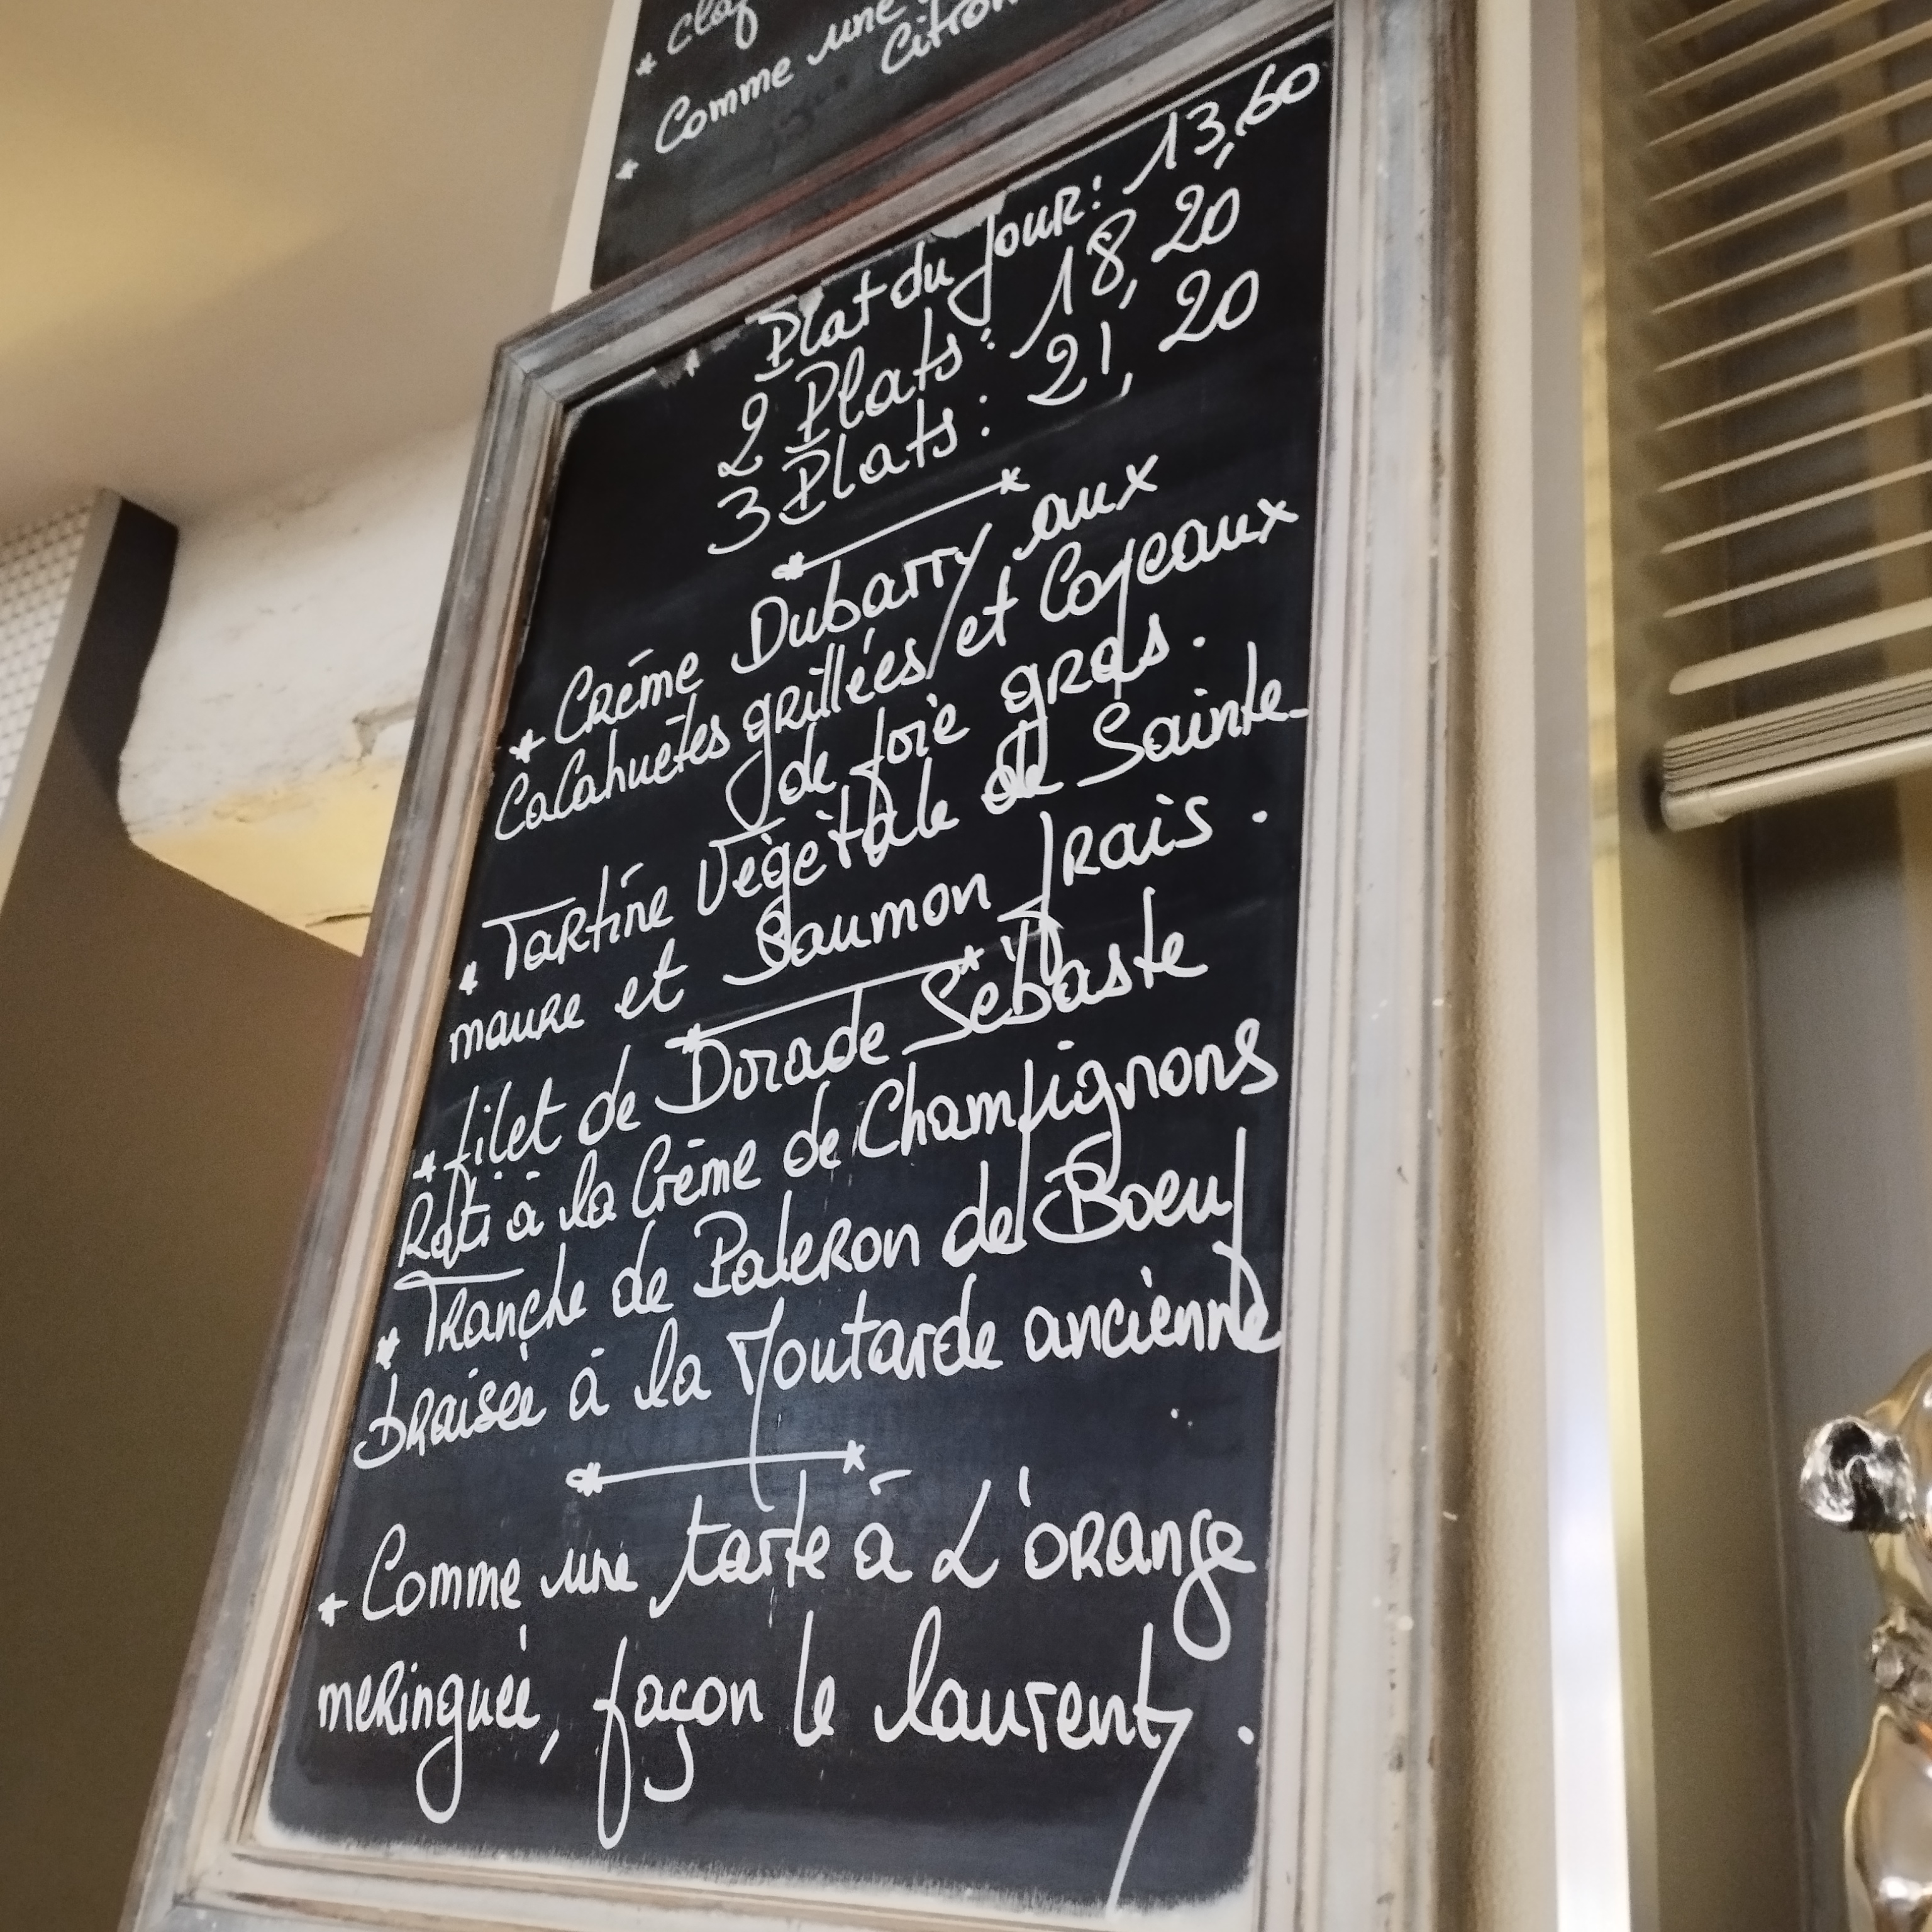 * Claf
* Comme une
Citron
Plat du Jour: 13,60
2 Plats: 18,20
3 Plats: 21,20
* Crème Dubarry aux
Cacahuètes grillées et Copeaux
de foie gras.
* Tartine Végétale de Sainte-
maure et Saumon frais.
* filet de Dorade Sébaste
Rôti à la Crème de Champignons
* Tranche de Paleron de Boeuf
braisée à la Moutarde ancienne
* Comme une tarte à L'orange
meringuée, façon le laurenty.